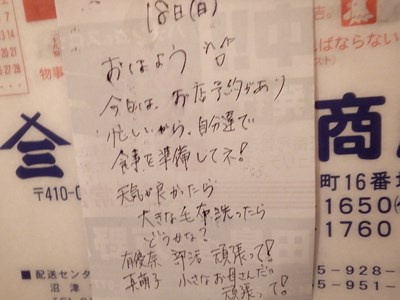 18日(日)
おはよう
今日は、お店予約があり
忙しいから、自分達で
食事を準備してネ!
天気が良かったら
大きな毛布洗ったら
どうかな?
部活 頑張って!
小さなお母さんだ
頑張って!
物事
ばならない
商
〒410-0
町16番
1650
1760
■配送セン
沼津
5-928-
5-951-